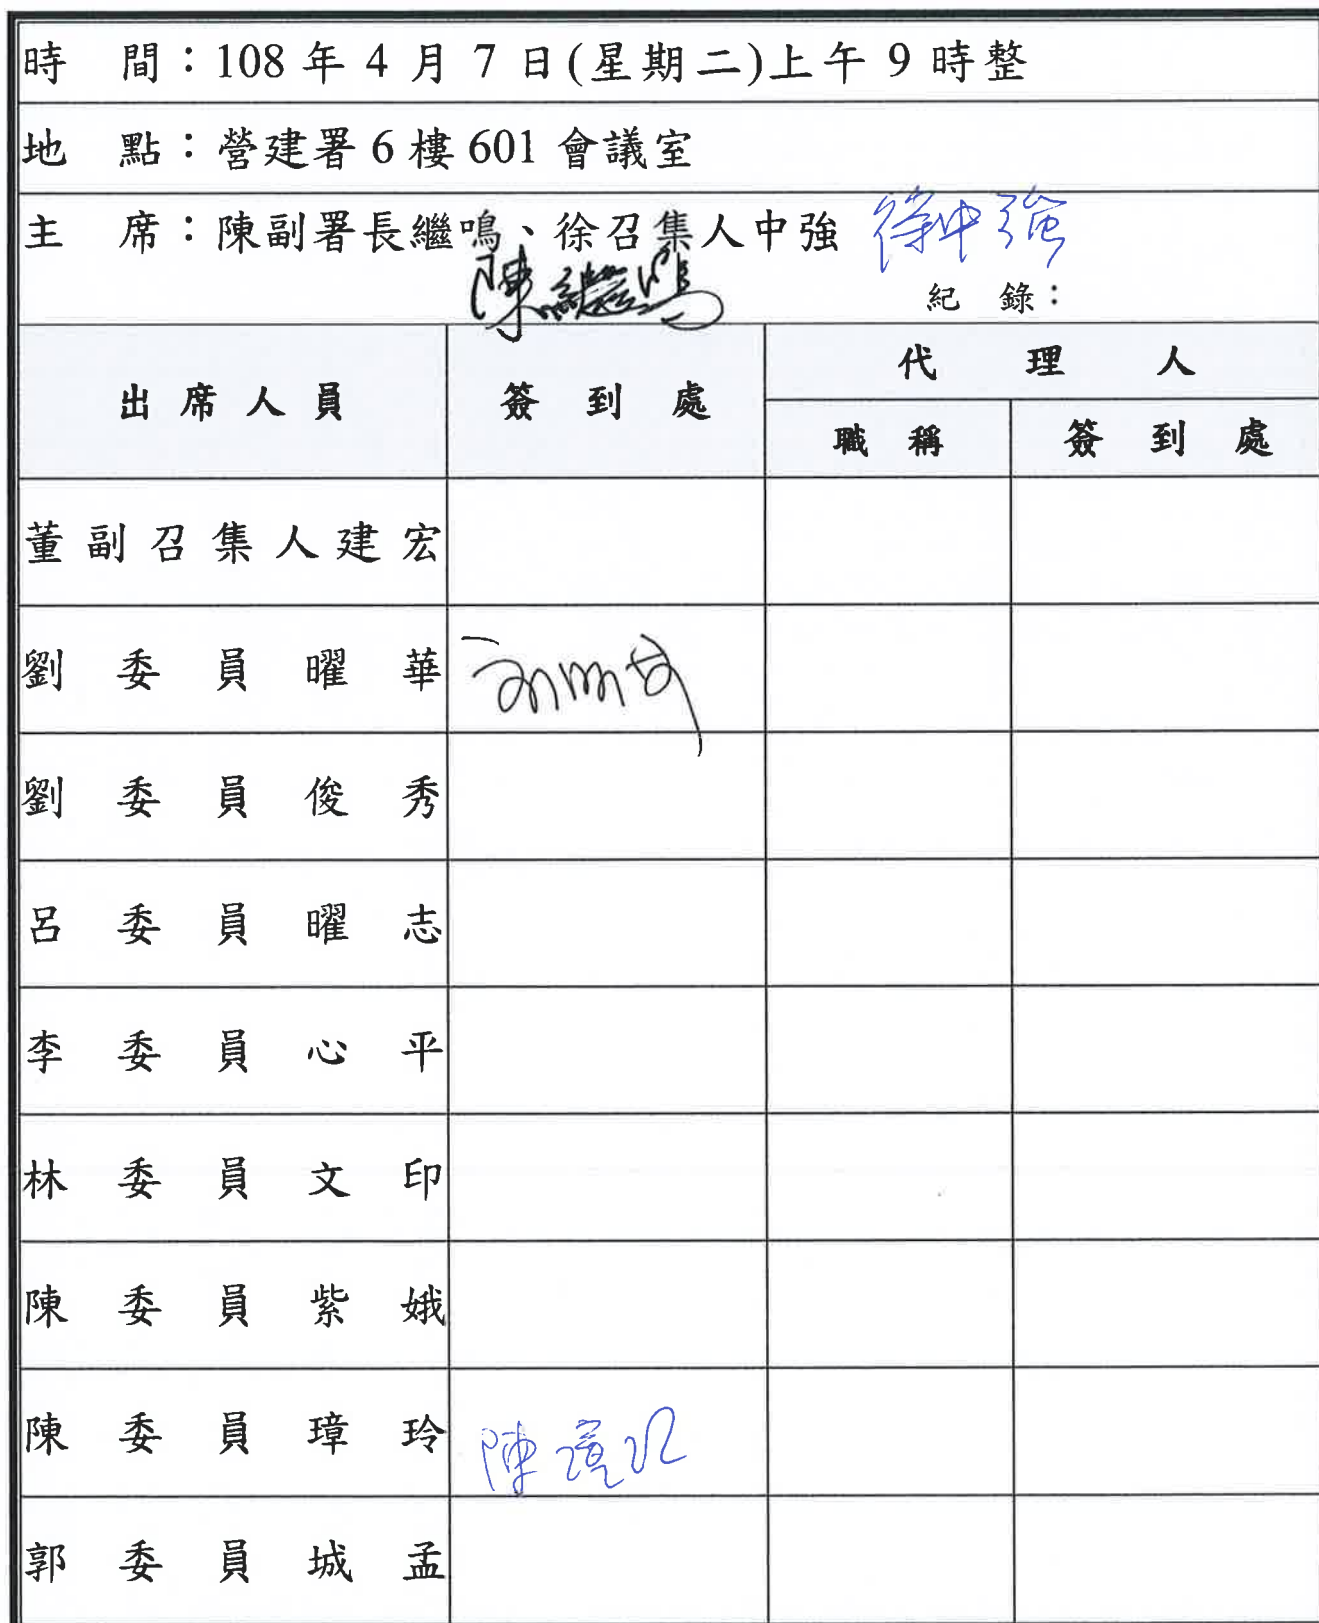 時 間：108 年 4 月 7 日(星期二)上午 9 時整
地 點：營建署 6 樓 601 會議室
主 席：陳副署長繼鳴、徐召集人中強 徐中強
陳繼鳴
紀 錄：
出席人員 簽到處 代理人
職稱 簽到處
董副召集人建宏
劉委員曜華
劉委員俊秀
呂委員曜志
李委員心平
林委員文印
陳委員紫娥
陳委員璋玲 陳璋玲
郭委員城孟